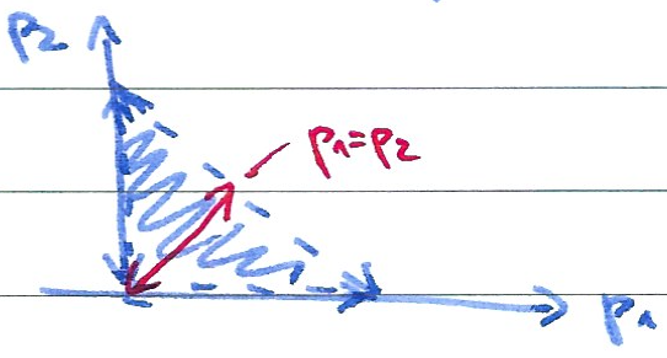 p2
p1=p2
p1